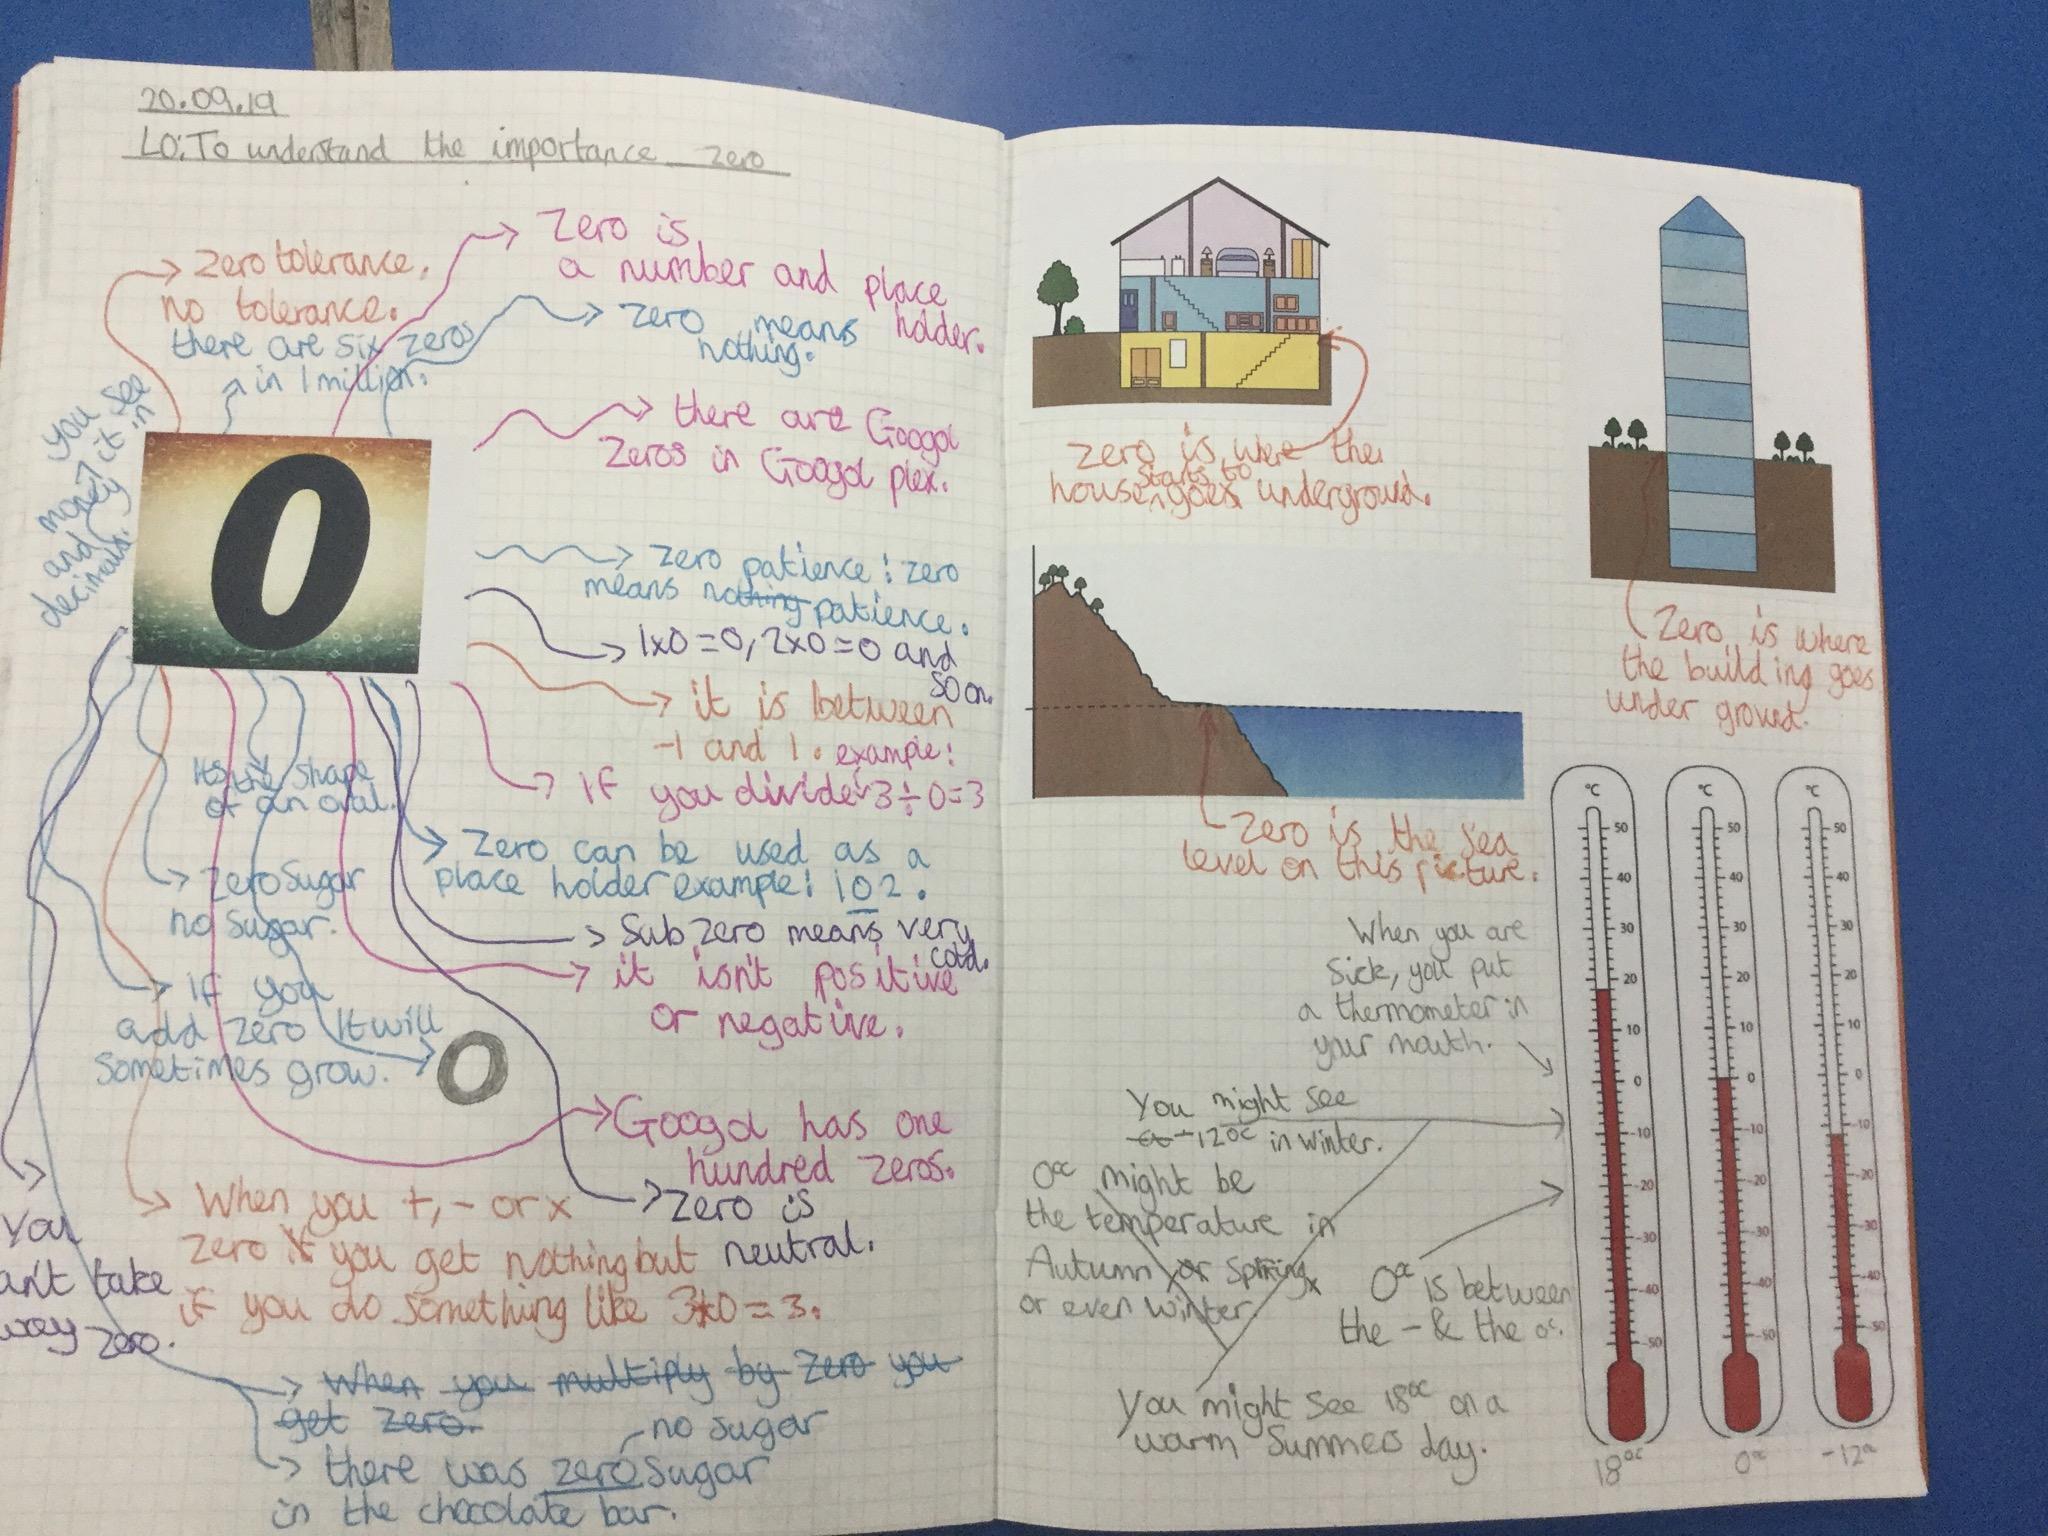 20.09.19
LO: To understand the importance zero
Zero tolerance,
no tolerance.
there are six zeros
in 1 million.
you see
it in
money
and
decimals.
Zero is
a number and place
holder.
zero means
nothing.
there are Googol
Zeros in Googol plex.
zero patience: zero
means nothing patience.
1x0=0, 2x0=0 and
so on.
it is between
-1 and 1.
example:
If you divide 3÷0=3
Its the shape
of an oval.
Zero can be used as a
place holder example: 102.
Zero Sugar
no sugar.
Sub zero means very
cold.
it isn't positive
or negative.
If you
add zero It will
Sometimes grow.
0
Googol has one
hundred zeros.
Zero is
neutral.
When you +, - or x
zero you get nothing but
if you do something like 3+0=3.
You
an't take
way zero.
When you multiply by zero you
get zero.
no sugar
there was zero sugar
in the chocolate bar.
zero is where the
house starts to goes underground.
Zero is where
the building goes
under ground.
Zero is the Sea
level on this picture.
When you are
sick, you put
a thermometer in
your mouth.
You might see
-12°c in winter.
0°c might be
the temperature in
Autumn or Spring
or even winter.
0°c is between
the - & the 0°c.
You might see 18°c on a
warm Summers day.
°C
50
40
30
20
10
0
-10
-20
-30
-40
-50
18°c
°C
50
40
30
20
10
0
-10
-20
-30
-40
-50
0°c
°C
50
40
30
20
10
0
-10
-20
-30
-40
-50
-12°c